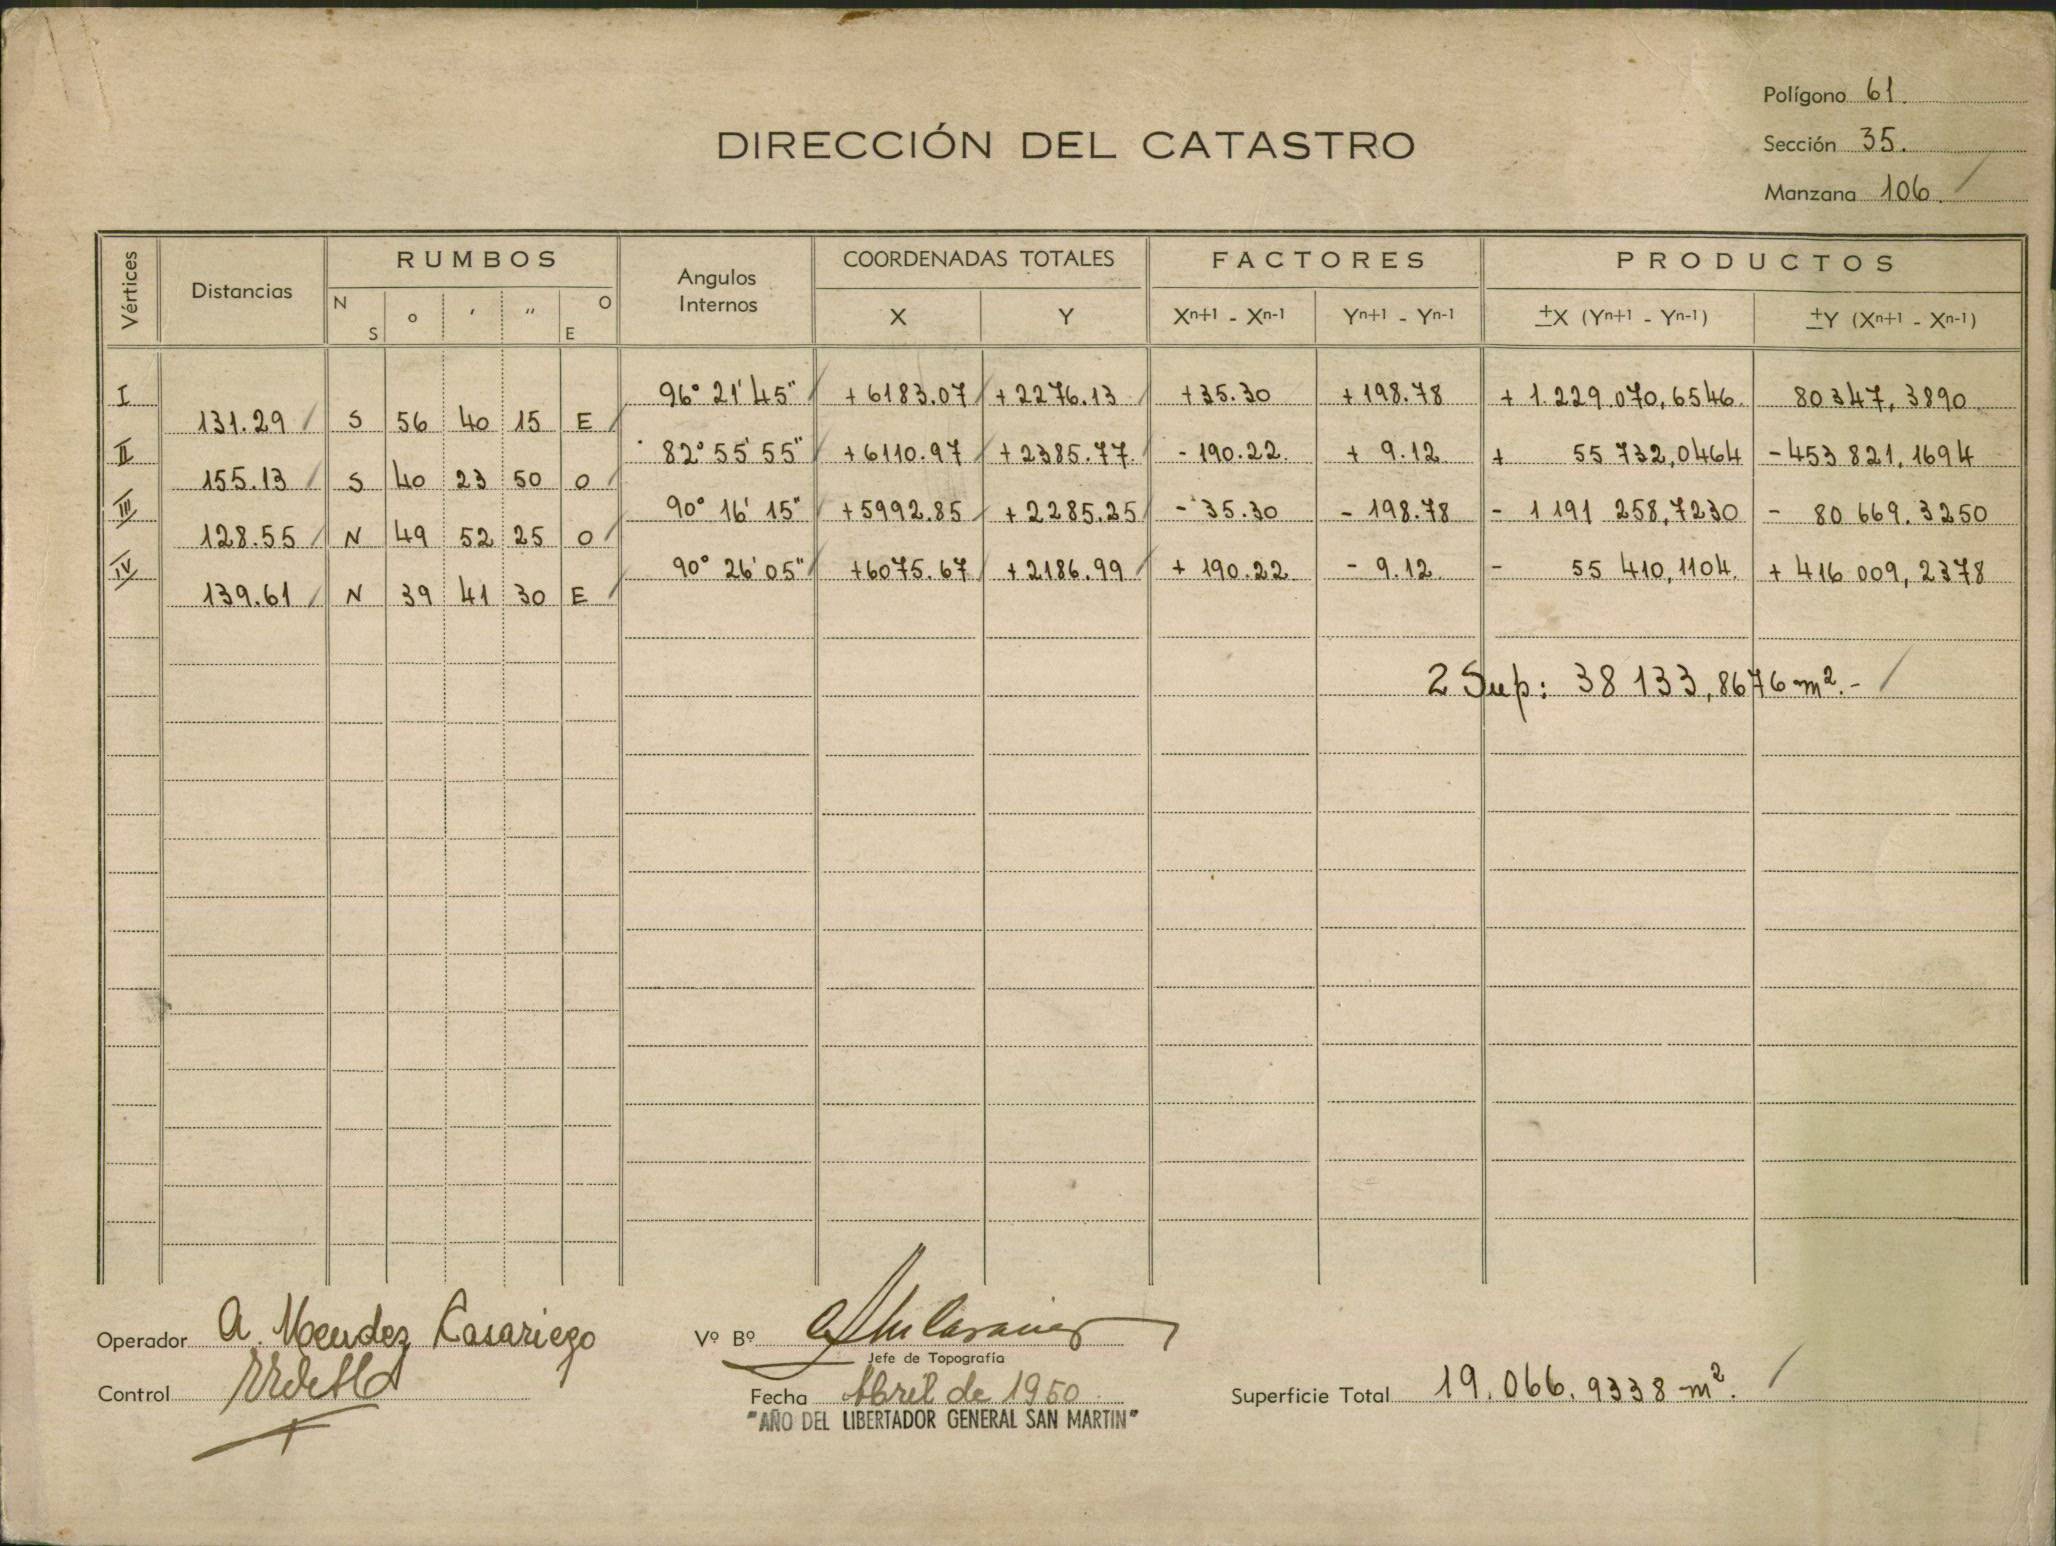 Polígono 61.
DIRECCIÓN DEL CATASTRO
Sección 35.
Manzana 106.
Vértices Distancias RUMBOS Angulos Internos COORDENADAS TOTALES FACTORES PRODUCTOS
N S ° ' " O E X Y Xn+1 - Xn-1 Yn+1 - Yn-1 ±X (Yn+1 - Yn-1) ±Y (Xn+1 - Xn-1)
I 96° 21' 45" +6183.07 +2276.13 +35.30 +198.78 +1.229.070,6546 80347,3890
131.29 S 56 40 15 E
II 82° 55' 55" +6110.97 +2385.77 -190.22 + 9.12 + 55 732,0464 -453 821,1694
155.13 S 40 23 50 O
III 90° 16' 15" +5992.85 +2285.25 -35.30 -198.78 - 1 191 258,7230 - 80 669.3250
128.55 N 49 52 25 O
IV 90° 26' 05" +6075.67 +2186.99 +190.22 - 9.12 - 55 410,1104 +416 009,2378
139.61 N 39 41 30 E
2 Sup: 38 133,8676 m².-
Operador A. Mendez Casariego
Vº Bº
Jefe de Topografía
Control
Fecha Abril de 1950
Superficie Total 19.066.9338 m².
"AÑO DEL LIBERTADOR GENERAL SAN MARTIN"